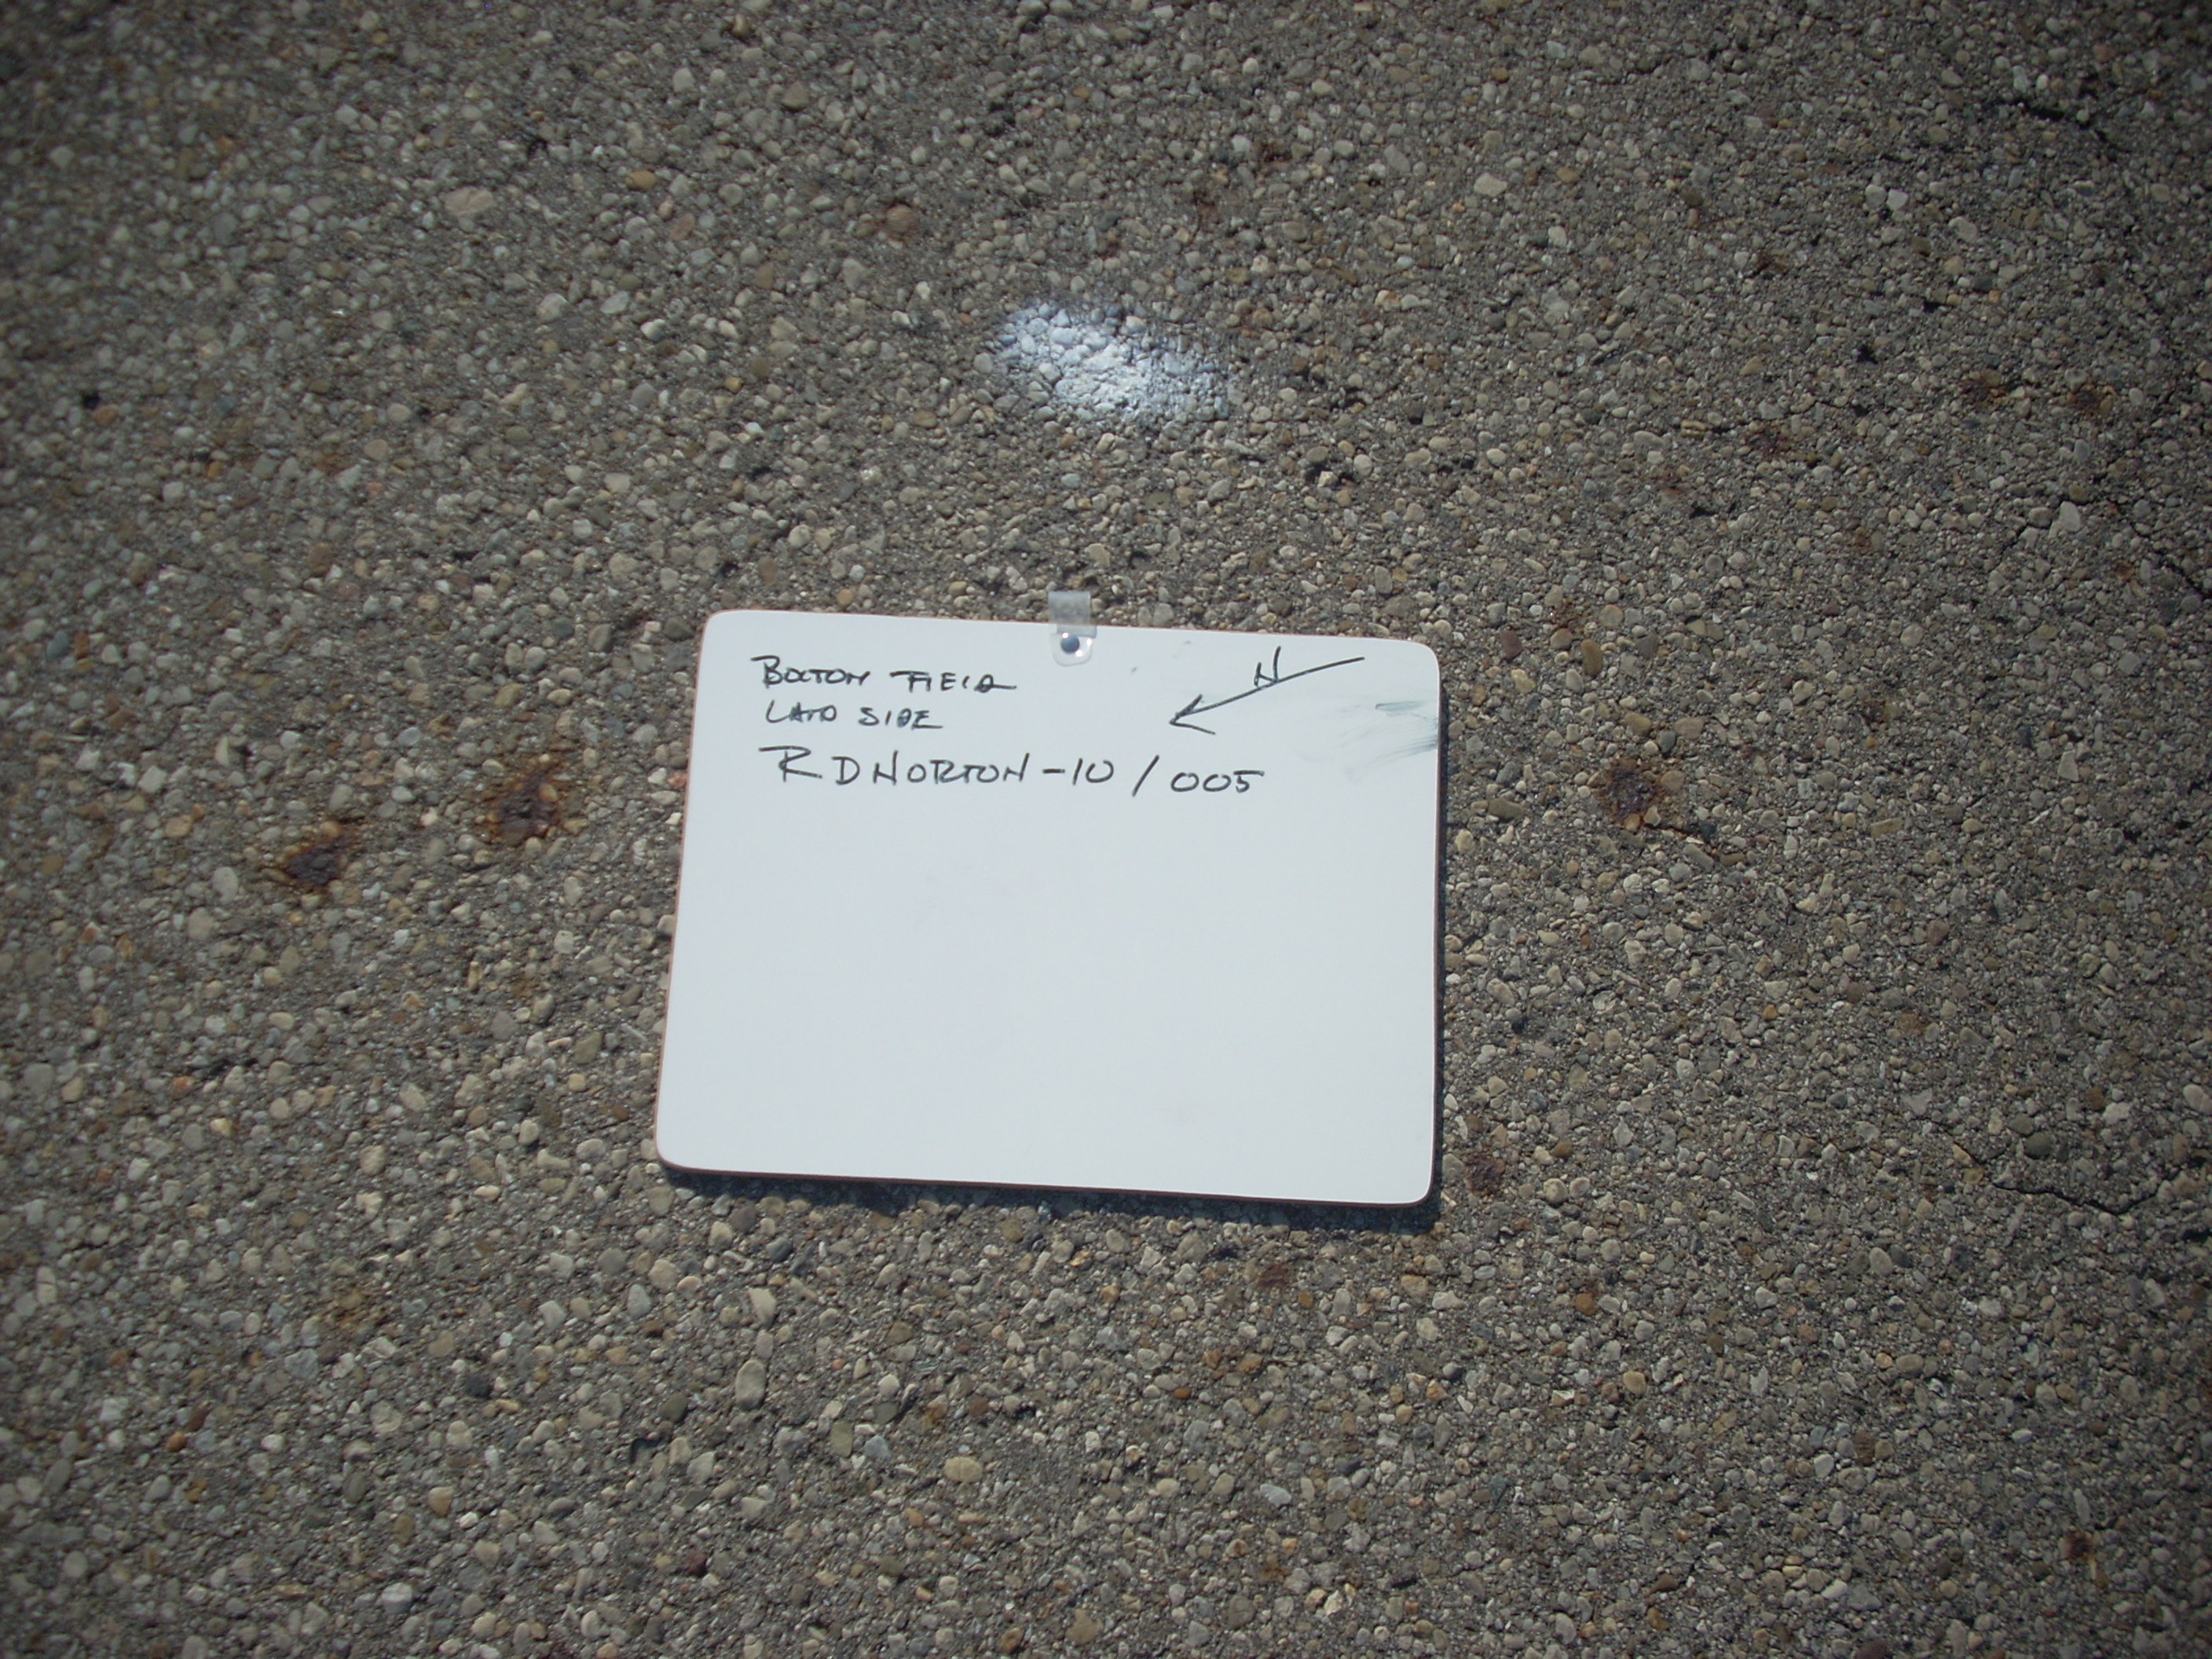 BOLTON FIELD
LAND SIDE
N
RDNORTON-10/005